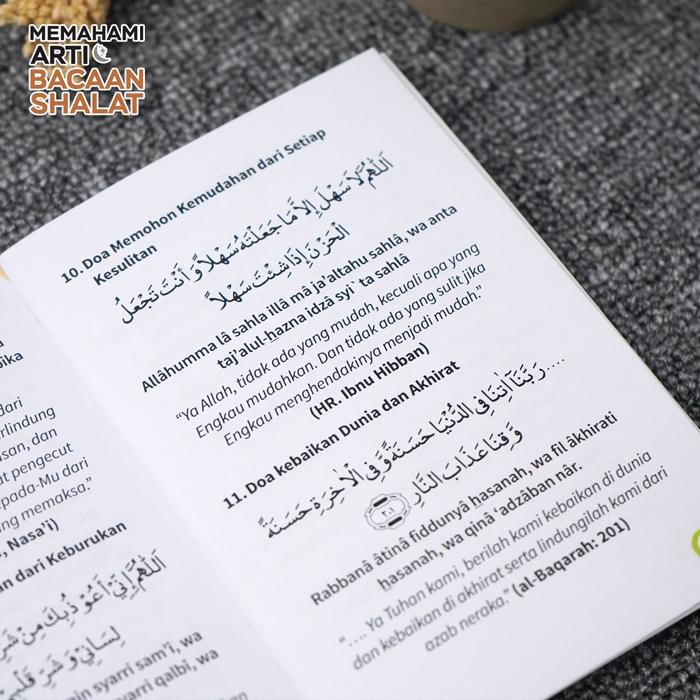 MEMAHAMI
ARTI
BACAAN
SHALAT
dari
san, dan
pengecut
pada-Mu dari
memaksa.”
Nasa'i)
dari Keburukan
اَللّٰهُمَّ اِنِّيْ اَعُوْذُبِكَ مِنْ شَرِّ
لِسَانِيْ وَشَرِّ
syarri sam’î, wa
syarri qalbî, wa
10. Doa Memohon Kemudahan dari Setiap
Kesulitan
اَللّٰهُمَّ لَاسَهْلَ اِلَّا مَّاجَعَلْتَهُ سَهْلًا وَ أَنْتَ تَجْعَلُ
الْحَزْنَ اِذَا شِئْتَ سَهْلًا
Allâhumma lâ sahla illâ mâ ja’altahu sahlâ, wa anta
taj’alul-hazna idzâ syi` ta sahlâ
“Ya Allah, tidak ada yang mudah, kecuali apa yang
Engkau mudahkan. Dan tidak ada yang sulit jika
Engkau menghendakinya menjadi mudah.”
(HR. Ibnu Hibban)
11. Doa kebaikan Dunia dan Akhirat
.... رَبَّنَآ اٰتِنَا فِى الدُّنْيَا حَسَنَةً وَّفِى الْاٰخِرَةِ حَسَنَةً
وَّقِنَا عَذَابَ النَّارِ ﴿٢٠١﴾
Rabbanâ âtinâ fiddunyâ hasanah, wa fil âkhirati
hasanah, wa qinâ ‘adzâban nâr.
“.... Ya Tuhan kami, berilah kami kebaikan di dunia
dan kebaikan di akhirat serta lindungilah kami dari
azab neraka.” (al-Baqarah: 201)